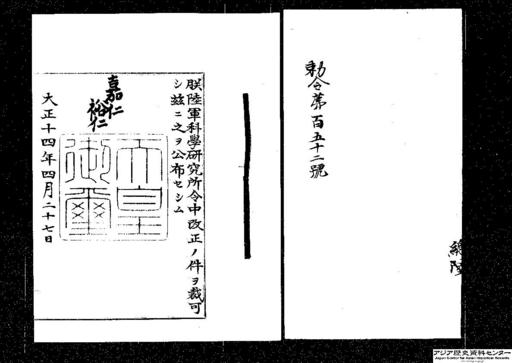 勅令第百五十二號
朕陸軍科學研究所令中改正ノ件ヲ裁可
シ茲ニ之ヲ公布セシム
嘉仁
裕仁
天皇御璽
大正十四年四月二十七日
アジア歴史資料センター
Japan Center for Asian Historical Records